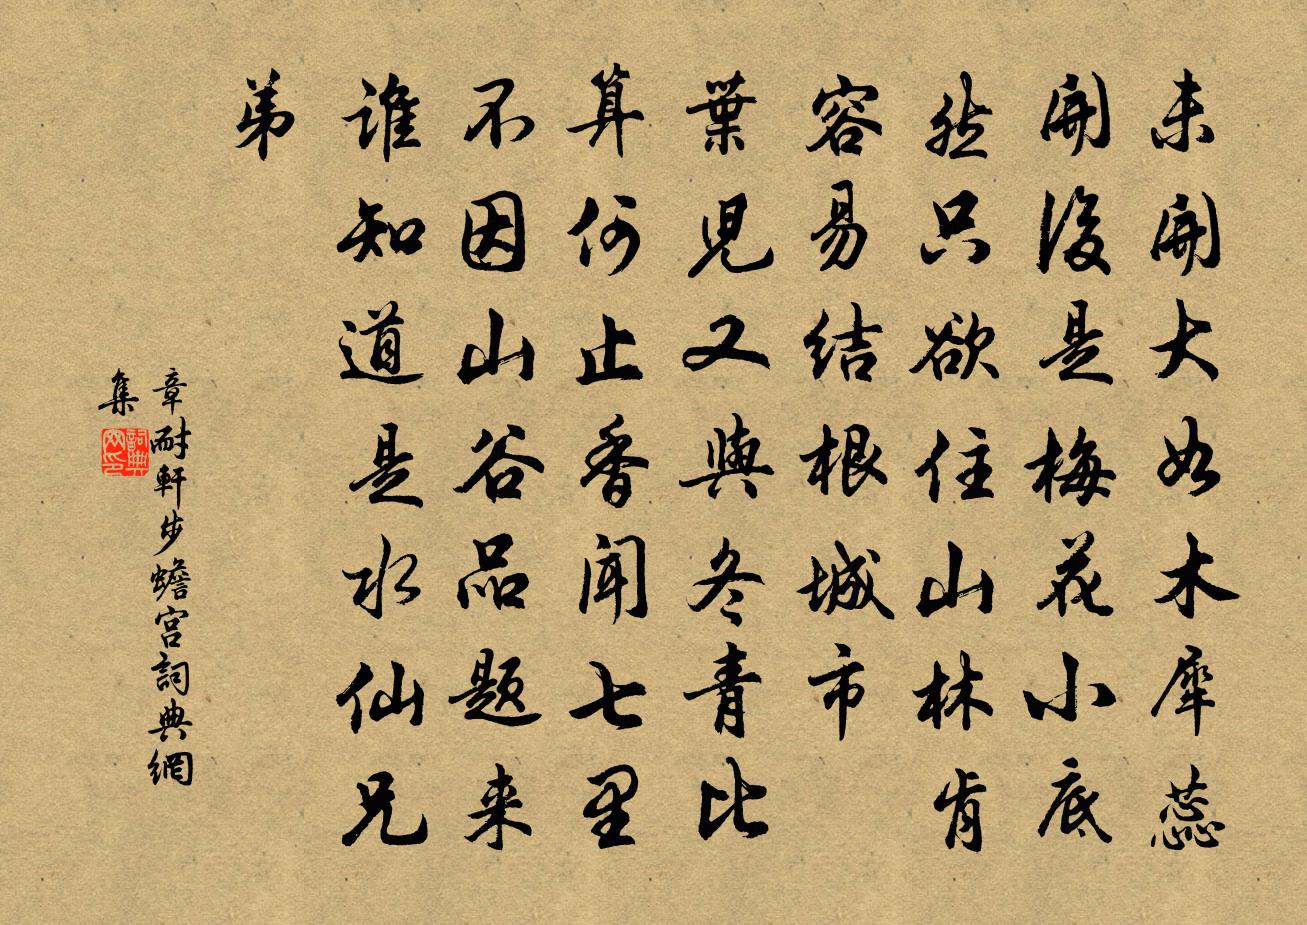 未開大如木犀蕊
開後是梅花小底
然只欲住山林肯
容易結根城市
葉兒又與冬青比
算何止香聞七里
不因山谷品题来
誰知道是水仙兄
弟
章耐軒步蟾宮詞典網
集
詞典网印